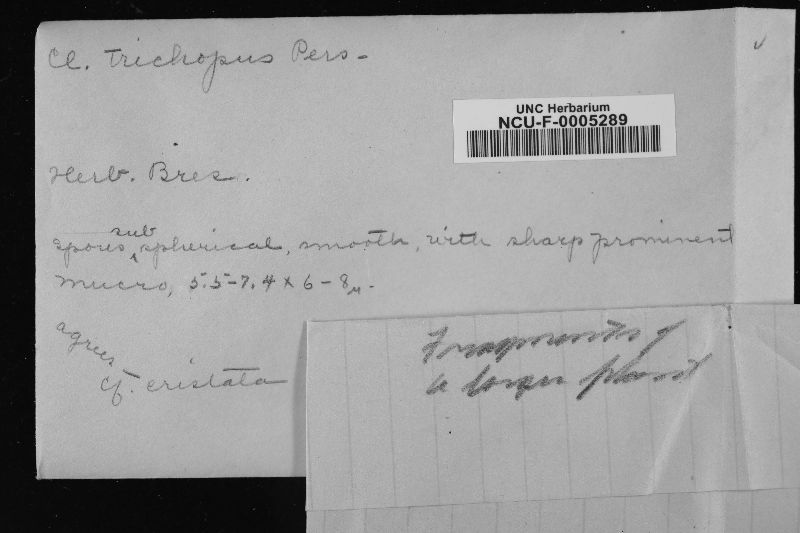 Cl. Trichopus Pers-
UNC Herbarium
NCU-F-0005289
Herb. Bres.
sub
spores ^ spherical, smooth, with sharp prominent
mucro, 5.5-7.4 x 6-8μ.
agrees
cf. cristata
Fragments of
a larger plant